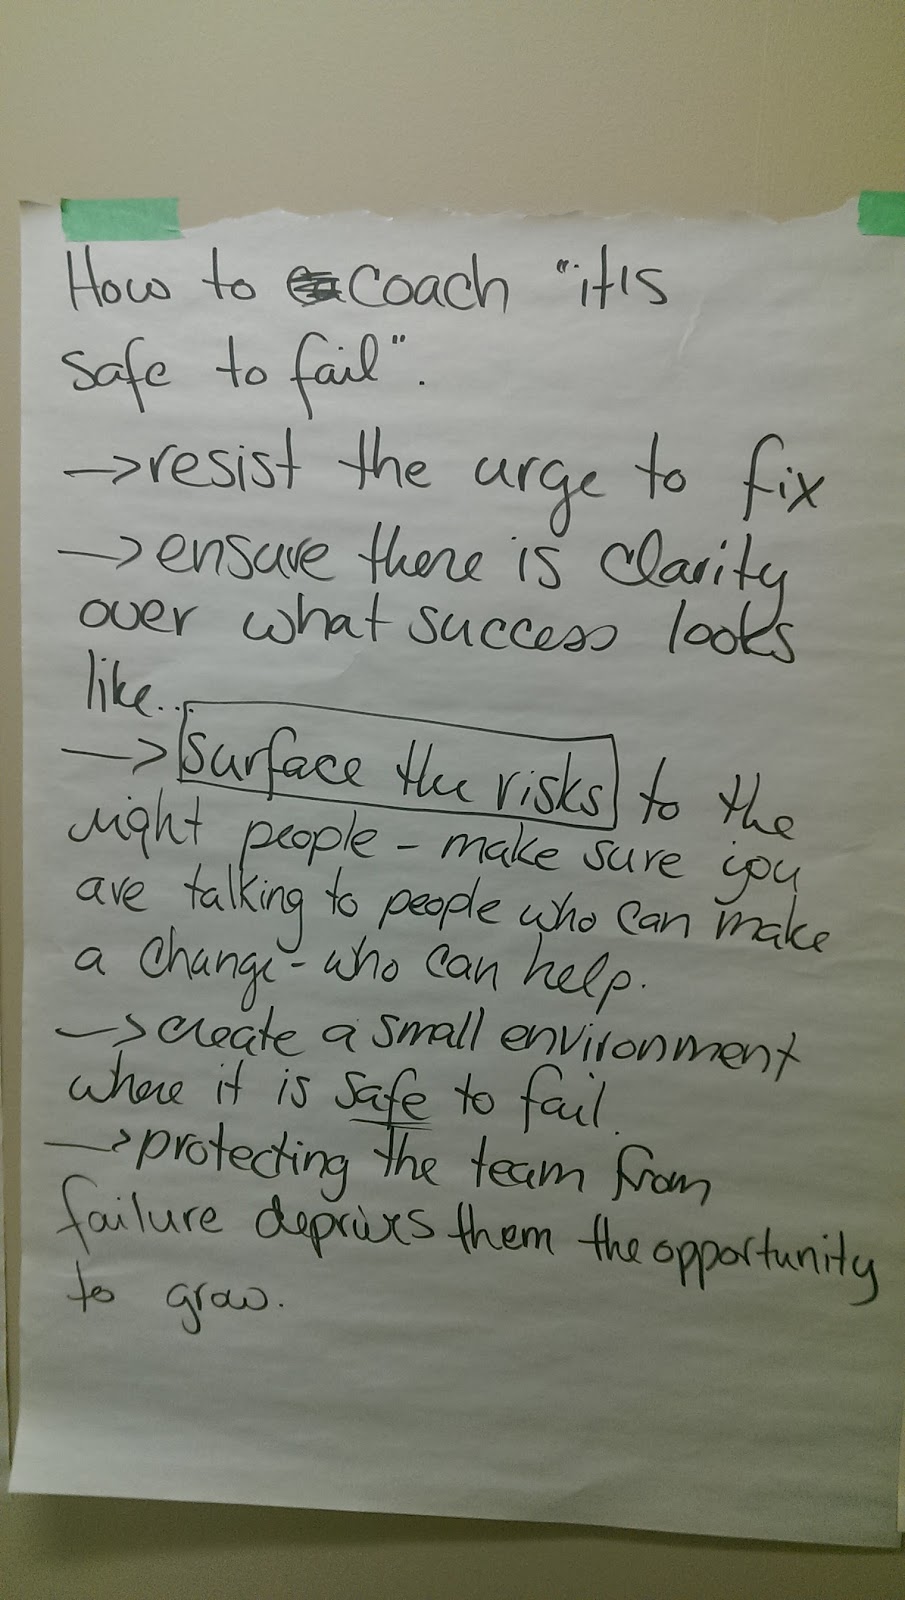 How to coach "it is
safe to fail".
→ resist the urge to fix
→ ensure there is clarity
over what success looks
like...
→ surface the risks to the
right people - make sure you
are talking to people who can make
a change - who can help.
→ create a small environment
where it is safe to fail.
→ protecting the team from
failure deprives them the opportunity
to grow.